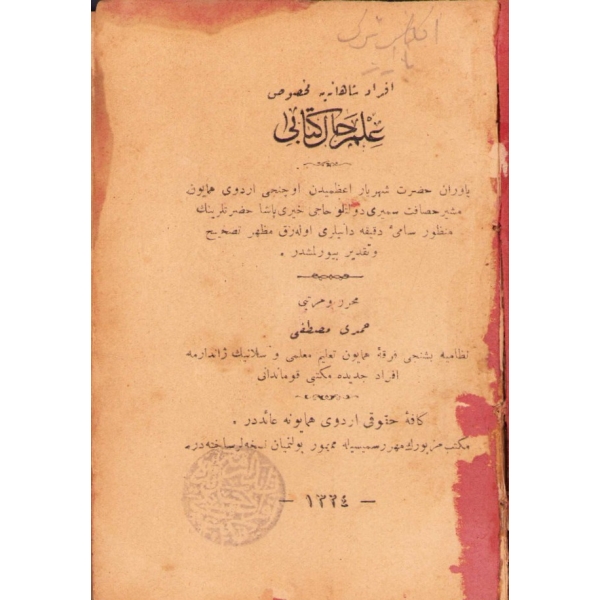 افراد شاهانه یه مخصوص
علم حال کتابی
یاوران حضرت شهریار اعظمیدن اوچنجی اردوی همایون
مشیر حصافت سمیری دولتلو حاجی خیری پاشا حضرتلرینك
منظور سامیٔ دقیقه دانیلری اوله رق مظهر تصحیح
و تقدیر بیورلمشدر .
محرر و مرتبی
حمدی مصطفی
نظامیه بشنجی فرقهٔ همایون تعلیم معلمی و سلانیك ژاندارمه
افراد جدیده مکتبی قوماندانی
کافهٔ حقوقی اردوی همایونه عائددر .
مکتب مزبورك مهر رسمیسیله ممهور بولنمیان نسخه لر ساخته در .
— ١٣٢٤ —